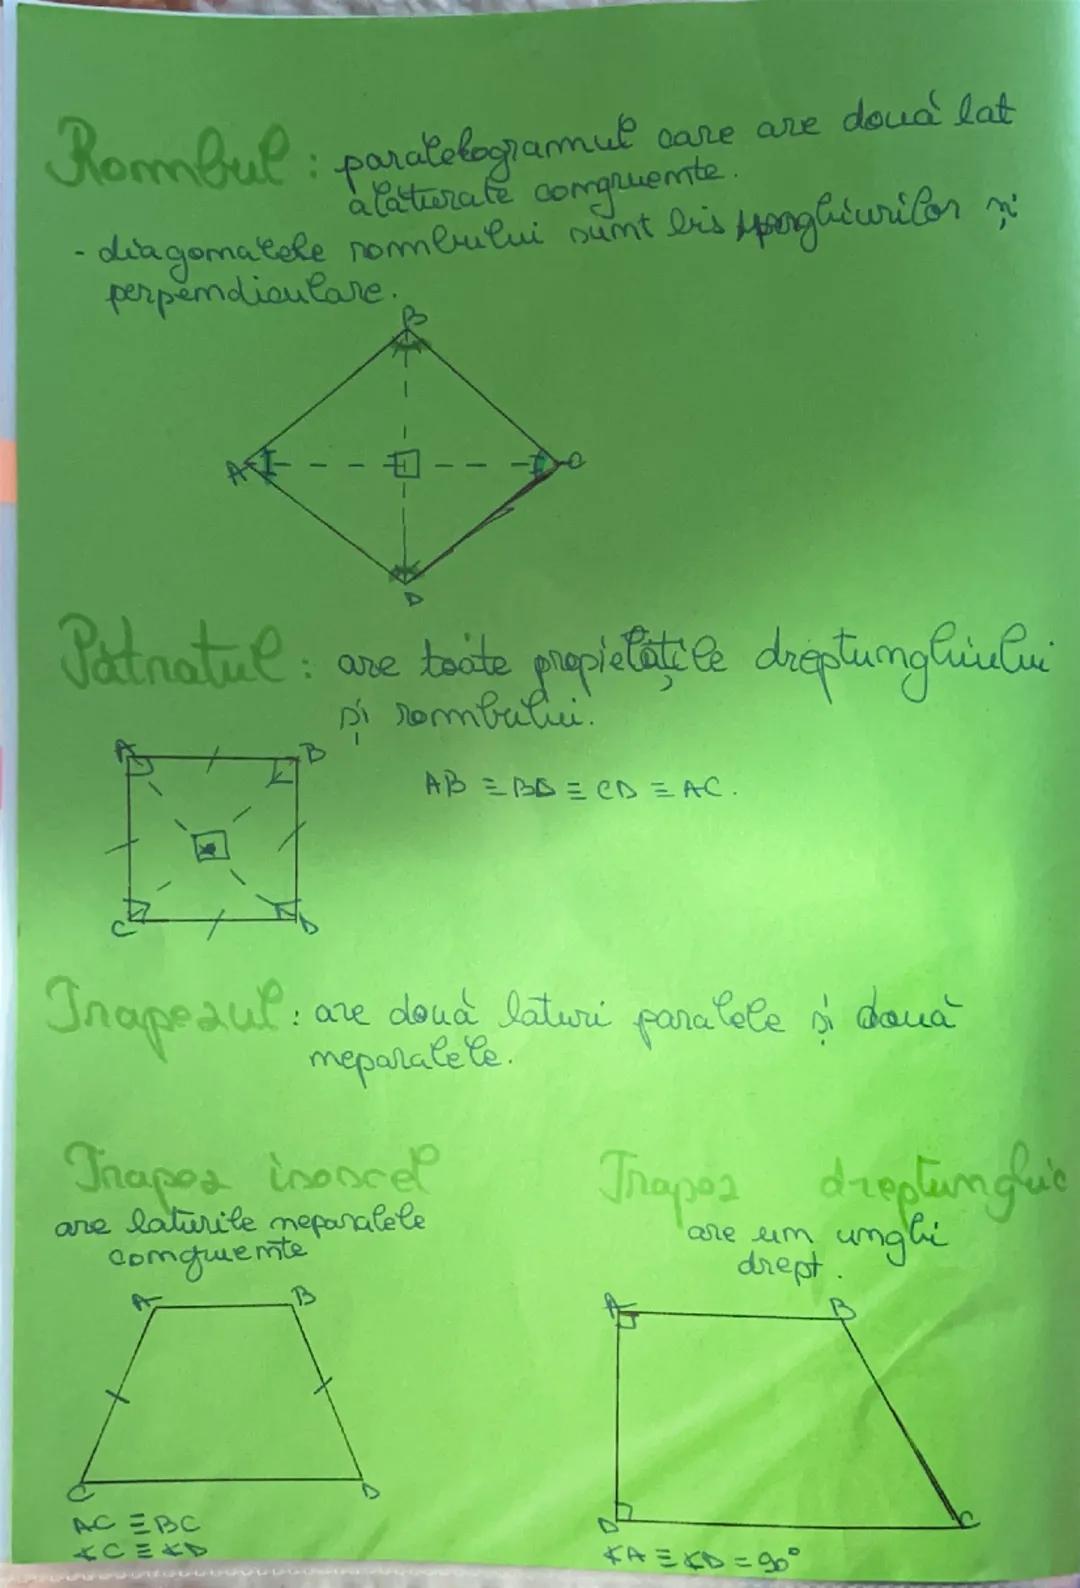 Rombul: paralelogramul care are două lat
alăturate congruente.
- diagonalele rombului sunt bis unghiurilor și
perpendiculare.
B
A
C
D
Pătratul: are toate propietățile dreptunghiului
și rombului.
A
B
AB ≡ BD ≡ CD ≡ AC.
C
D
Trapezul: are două laturi paralele și două
neparalele.
Trapez isoscel
are laturile neparalele
congruente
A
B
C
D
AC ≡ BC
∢C ≡ ∢D
Trapez dreptunghic
are un unghi
drept.
A
B
D
C
∢A ≡ ∢D = 90°